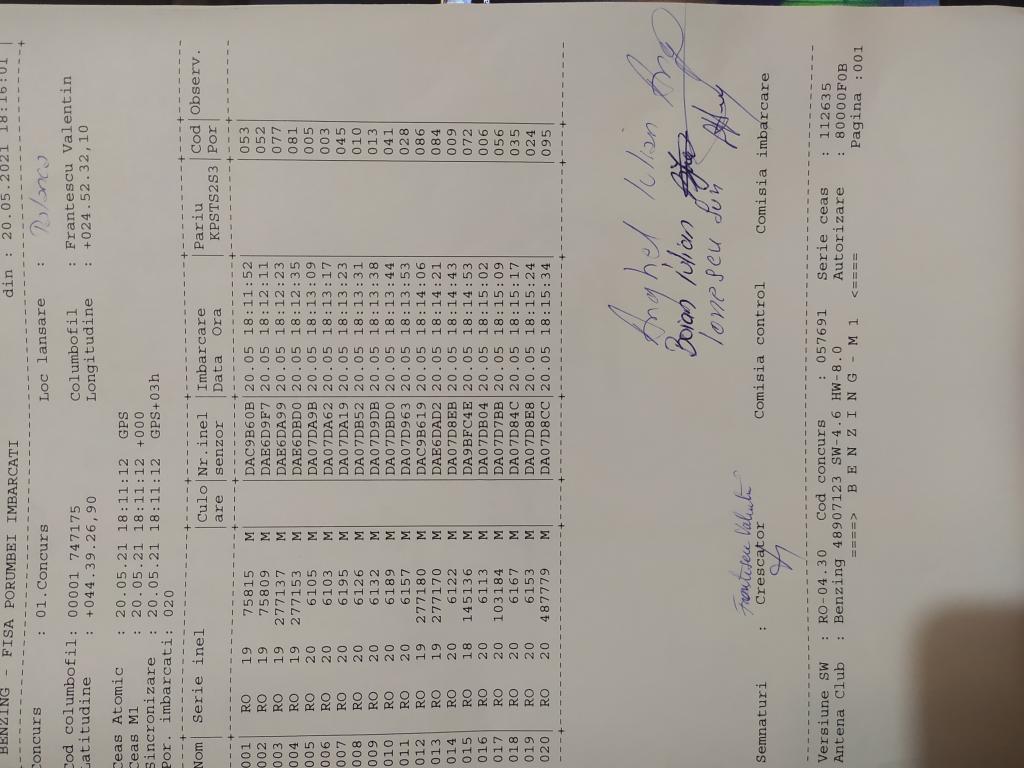 BENZING - FISA PORUMBEI IMBARCATI din : 20.05.2021 18:16:01
Concurs : 01.Concurs Loc lansare :
Cod columbofil: 00001 747175 Columbofil : Frantescu Valentin
Latitudine : +044.39.26,90 Longitudine : +024.52.32,10
Ceas Atomic : 20.05.21 18:11:12 GPS
Ceas M1 : 20.05.21 18:11:12 +000
Sincronizare : 20.05.21 18:11:12 GPS+03h
Por. imbarcati: 020
Nom | Serie inel | Culo | Nr.inel | Imbarcare | Pariu | Cod | Observ.
are | senzor | Data Ora | KPSTS2S3 | Por
001 RO 19 75815 M DAC9B60B 20.05 18:11:52 053
002 RO 19 75809 M DAE6D9F7 20.05 18:12:11 052
003 RO 19 277137 M DAE6DA99 20.05 18:12:23 077
004 RO 19 277153 M DAE6DBD0 20.05 18:12:35 081
005 RO 20 6105 M DA07DA9B 20.05 18:13:09 005
006 RO 20 6103 M DA07DA62 20.05 18:13:17 003
007 RO 20 6195 M DA07DA19 20.05 18:13:23 045
008 RO 20 6126 M DA07DB52 20.05 18:13:31 010
009 RO 20 6132 M DA07D9DB 20.05 18:13:38 013
010 RO 20 6189 M DA07DBD0 20.05 18:13:44 041
011 RO 20 6157 M DA07D963 20.05 18:13:53 028
012 RO 19 277180 M DAC9B619 20.05 18:14:06 086
013 RO 19 277170 M DAE6DAD2 20.05 18:14:21 084
014 RO 20 6122 M DA07D8EB 20.05 18:14:43 009
015 RO 18 145136 M DA9BFC4E 20.05 18:14:53 072
016 RO 20 6113 M DA07DB04 20.05 18:15:02 006
017 RO 20 103184 M DA07D7BB 20.05 18:15:09 056
018 RO 20 6167 M DA07D84C 20.05 18:15:17 035
019 RO 20 6153 M DA07D8E8 20.05 18:15:24 024
020 RO 20 487779 M DA07D8CC 20.05 18:15:34 095
Anghel Iulian
Boian Iulian
Ionescu
Frantescu Valentin
Semnaturi : Crescator Comisia control Comisia imbarcare
Versiune SW : RO-04.30 Cod concurs : 057691 Serie ceas : 112635
Antena Club : Benzing 48907123 SW-4.6 HW-8.0 Autorizare : 80000F0B
====> B E N Z I N G - M 1 <==== Pagina :001